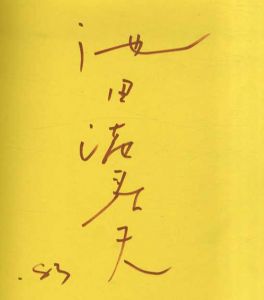 池田満寿夫
.83